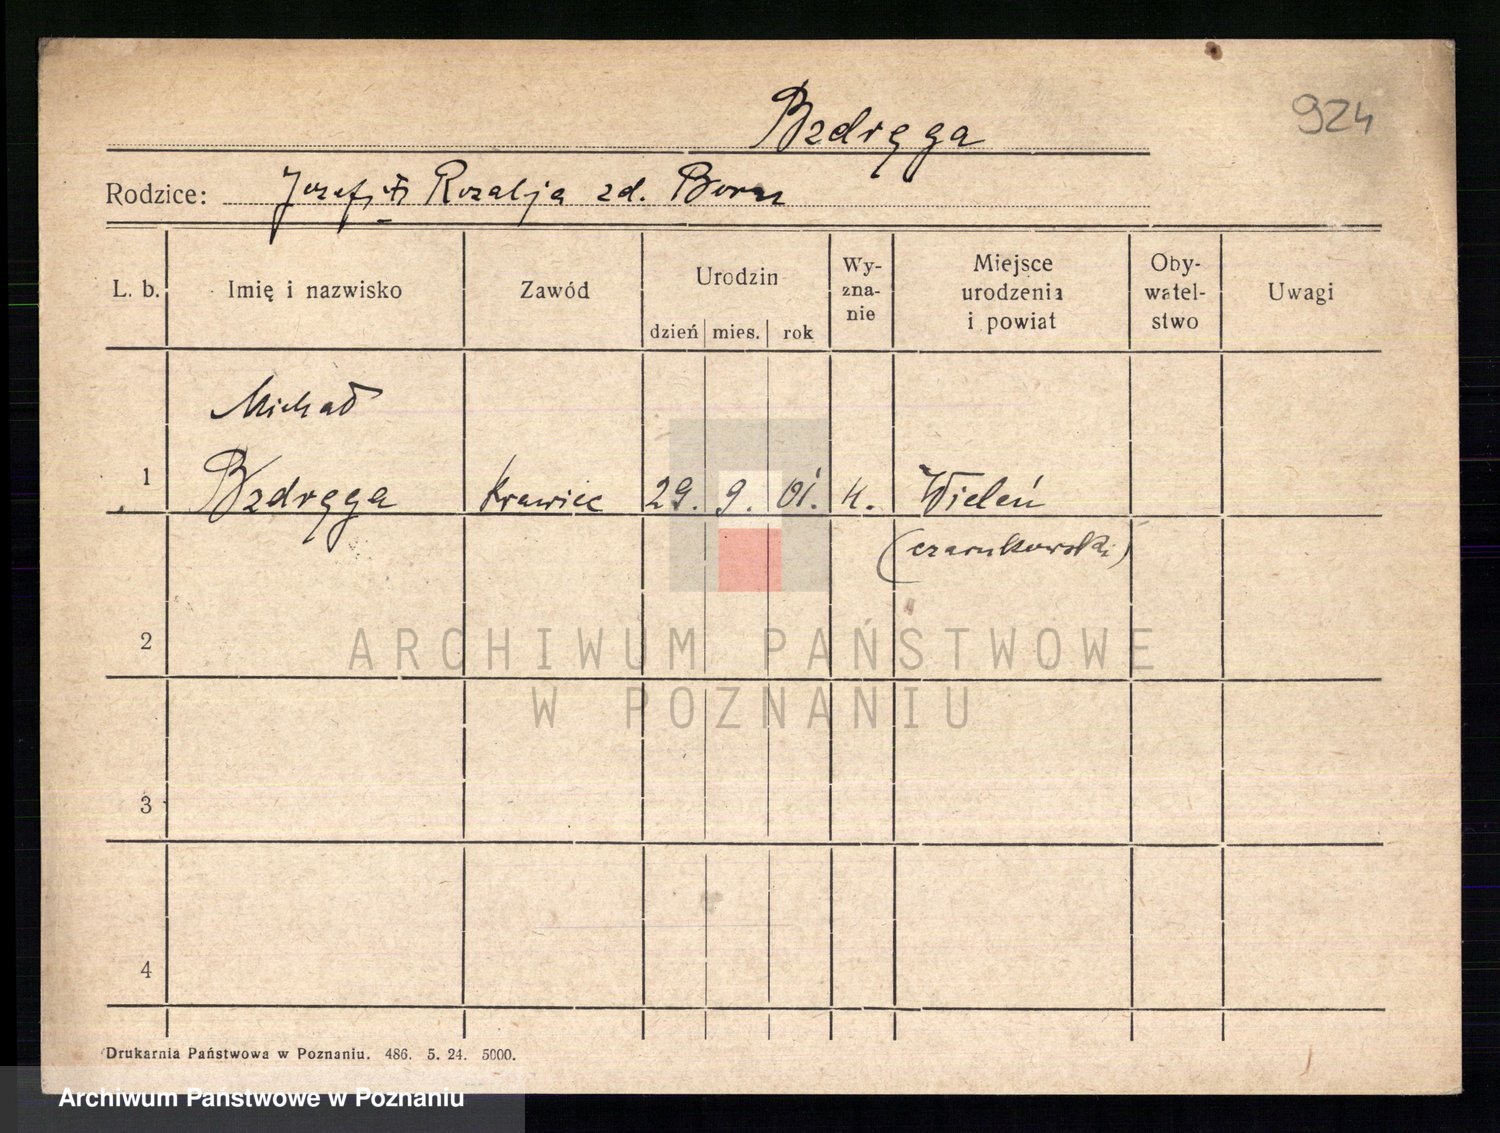 924
Bzdręga
Rodzice: Józef i Rozalja zd. Born
L. b. Imię i nazwisko Zawód Urodzin dzień mies. rok Wy-zna-nie Miejsce urodzenia i powiat Oby-watel-stwo Uwagi
Michał
1 Bzdręga Krawiec 29. 9. 01. k. Wieleń
(czarnkowski)
2
ARCHIWUM PAŃSTWOWE
W POZNANIU
3
4
Drukarnia Państwowa w Poznaniu. 486. 5. 24. 5000.
Archiwum Państwowe w Poznaniu